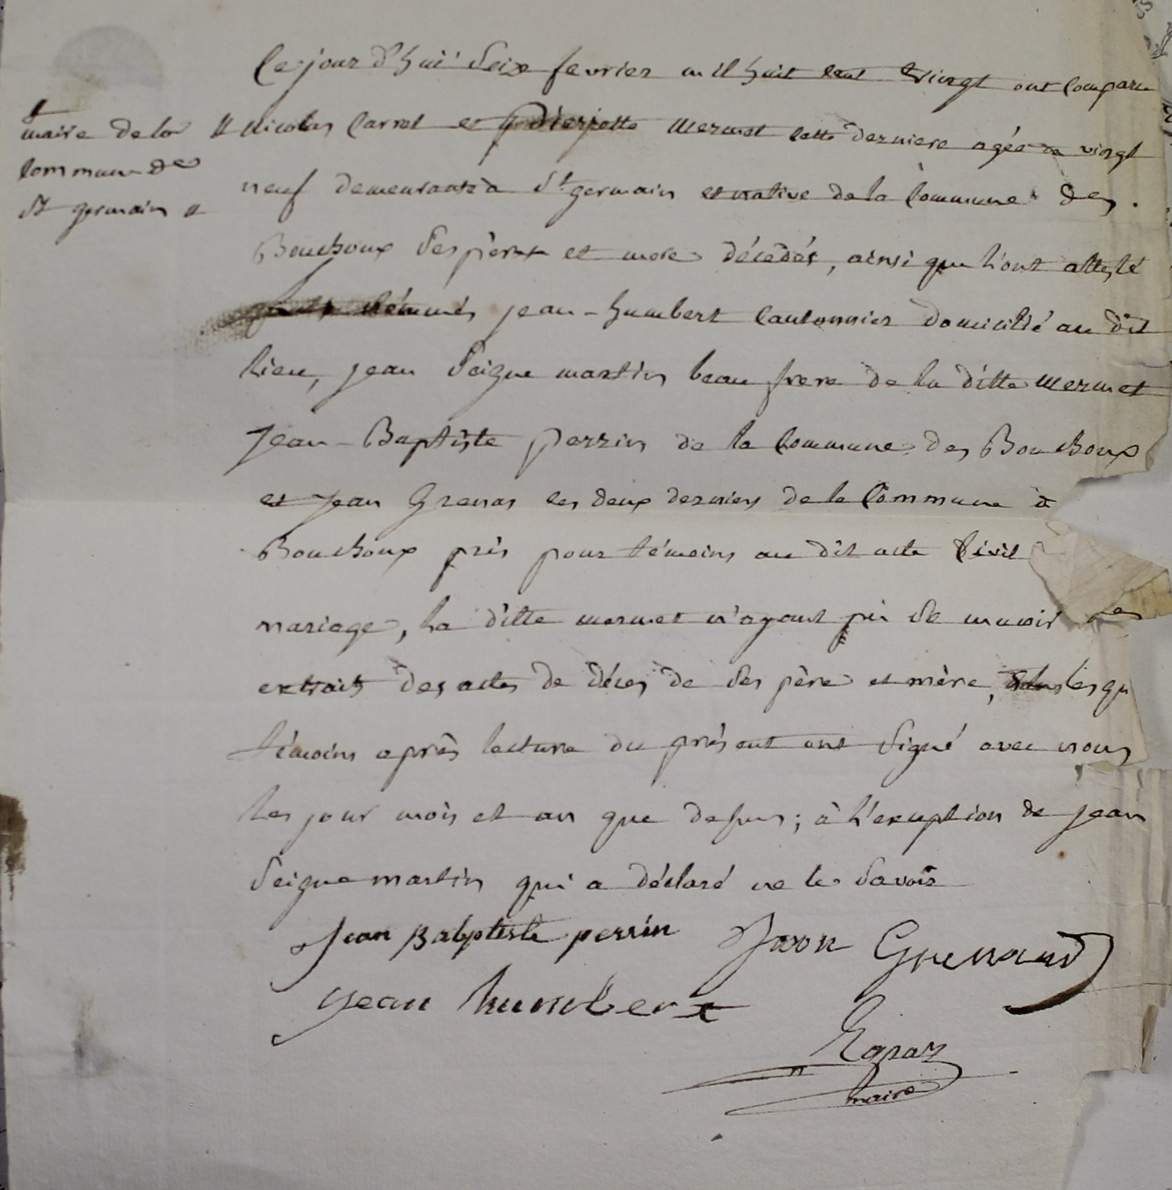 Ce jour d'hui seize fevrier mil huit cent vingt ont comparu
maire de la
commune de
St germain
Nicolas Carrot et pierrette Mermet cette derniere agée de vingt
neuf demeurante à St germain et native de la Commune des
Bouchoux ses père et mere décédés, ainsi que l'ont attesté
jean-humbert Cantonnier domicilié au dit
lieu, jean Seigne martin beau frere de la ditte Mermet
Jean-Baptiste Perrin de la Commune des Bouchoux
et Jean Grenar les deux derniers de la Commune d
Bouchoux pris pour témoins au dit acte Civil
mariage, la ditte mermet n'ayant pu se munir
extraits des actes de décès de ses père et mère, lesqu
témoins après lecture du présent ont signé avec nous
les jour mois et an que dessus; à l'exception de jean
Seigne martin qui a déclaré ne le savoir
Jean Babptiste perrin Jean Grenard
jean humbert
maire